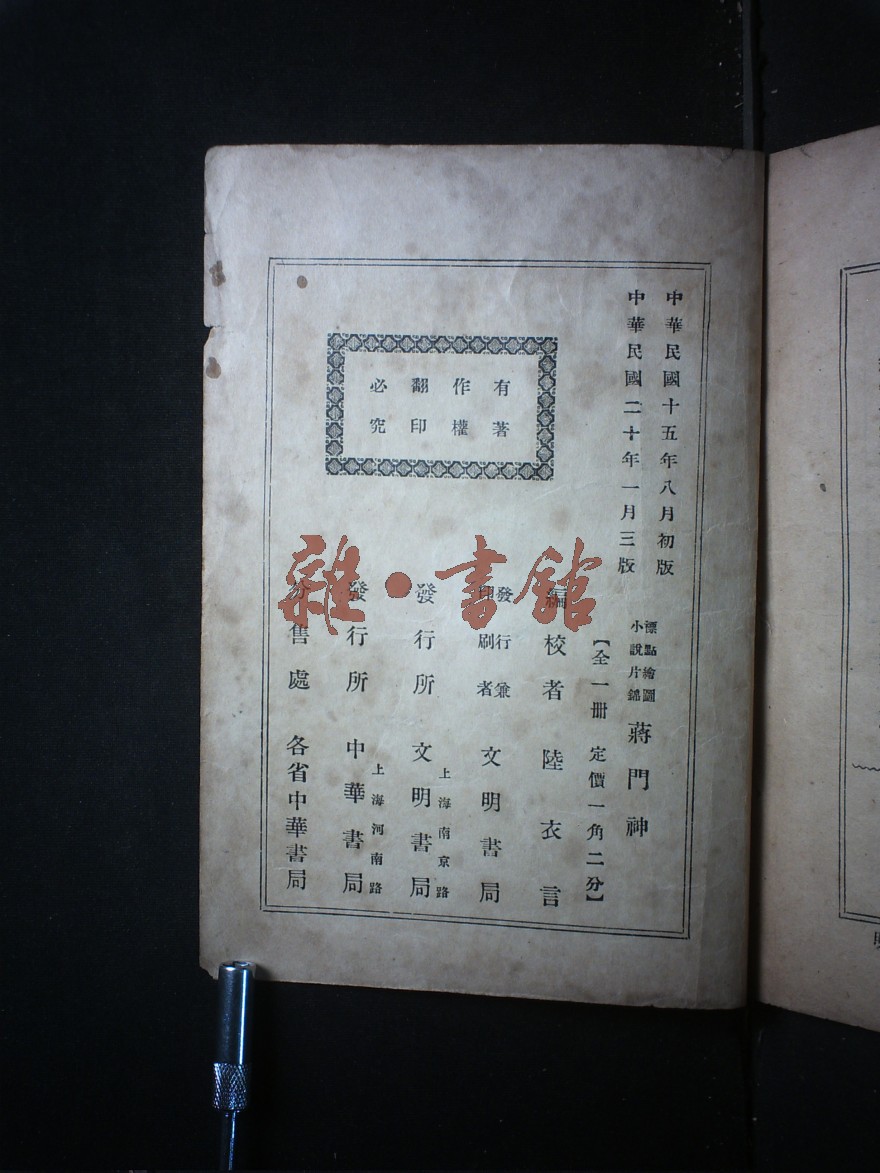 中華民國十五年八月初版
中華民國二十年一月三版
標點繪圖
小說片錦
蔣門神
【全一冊 定價一角二分】
編校者 陸衣言
發行兼
印刷者
文明書局
上海南京路
發行所 文明書局
上海河南路
發行所 中華書局
分售處 各省中華書局
有著
作權
翻印
必究
雜·書館